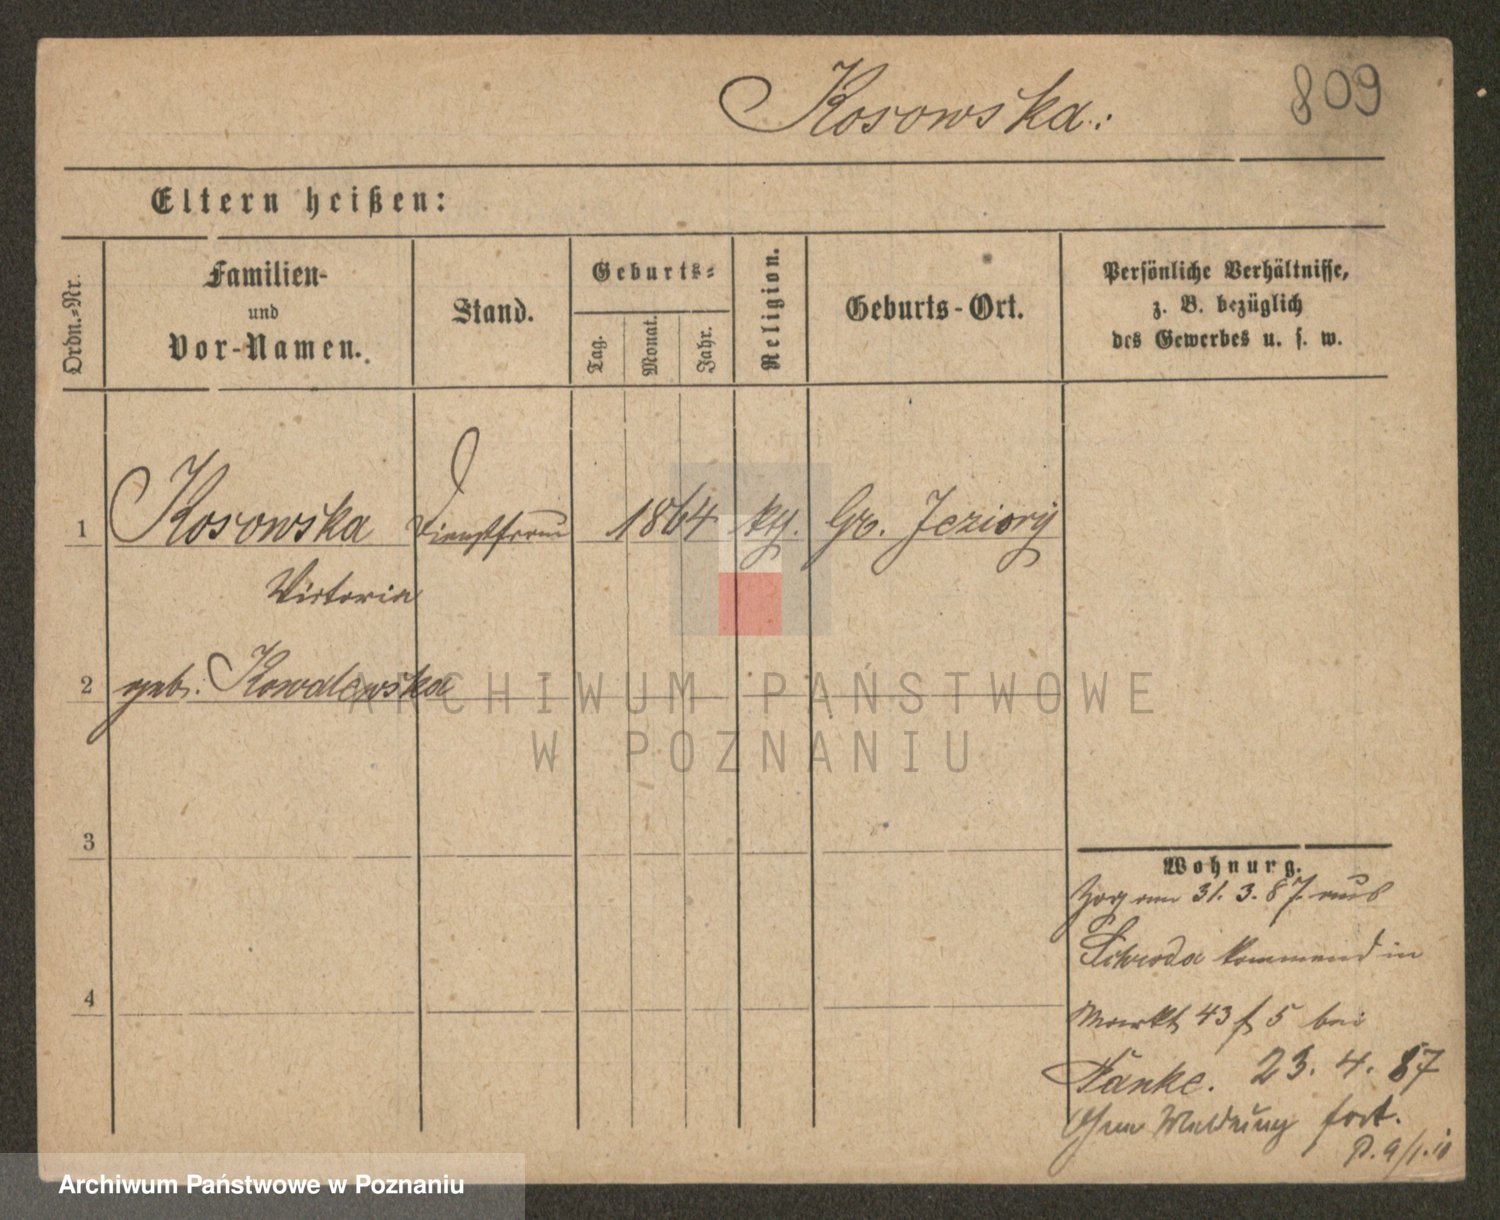 Kosowska.
809
Eltern heißen:
Ordn.-Nr.
Familien-
und
Vor-Namen.
Stand.
Geburts-
Tag.
Monat.
Jahr.
Religion.
Geburts-Ort.
Persönliche Verhältnisse,
z. B. bezüglich
des Gewerbes u. s. w.
1 Kosowska 1864 Gr. Jeziory
Victoria
2 geb. Kowalewska
3
4
ARCHIWUM PAŃSTWOWE
W POZNANIU
Wohnung.
Zog am 31. 3. 87 aus
Schroda kommend in
Markt 43 5 bei
23. 4. 87
Ohne Meldung fort.
Archiwum Państwowe w Poznaniu